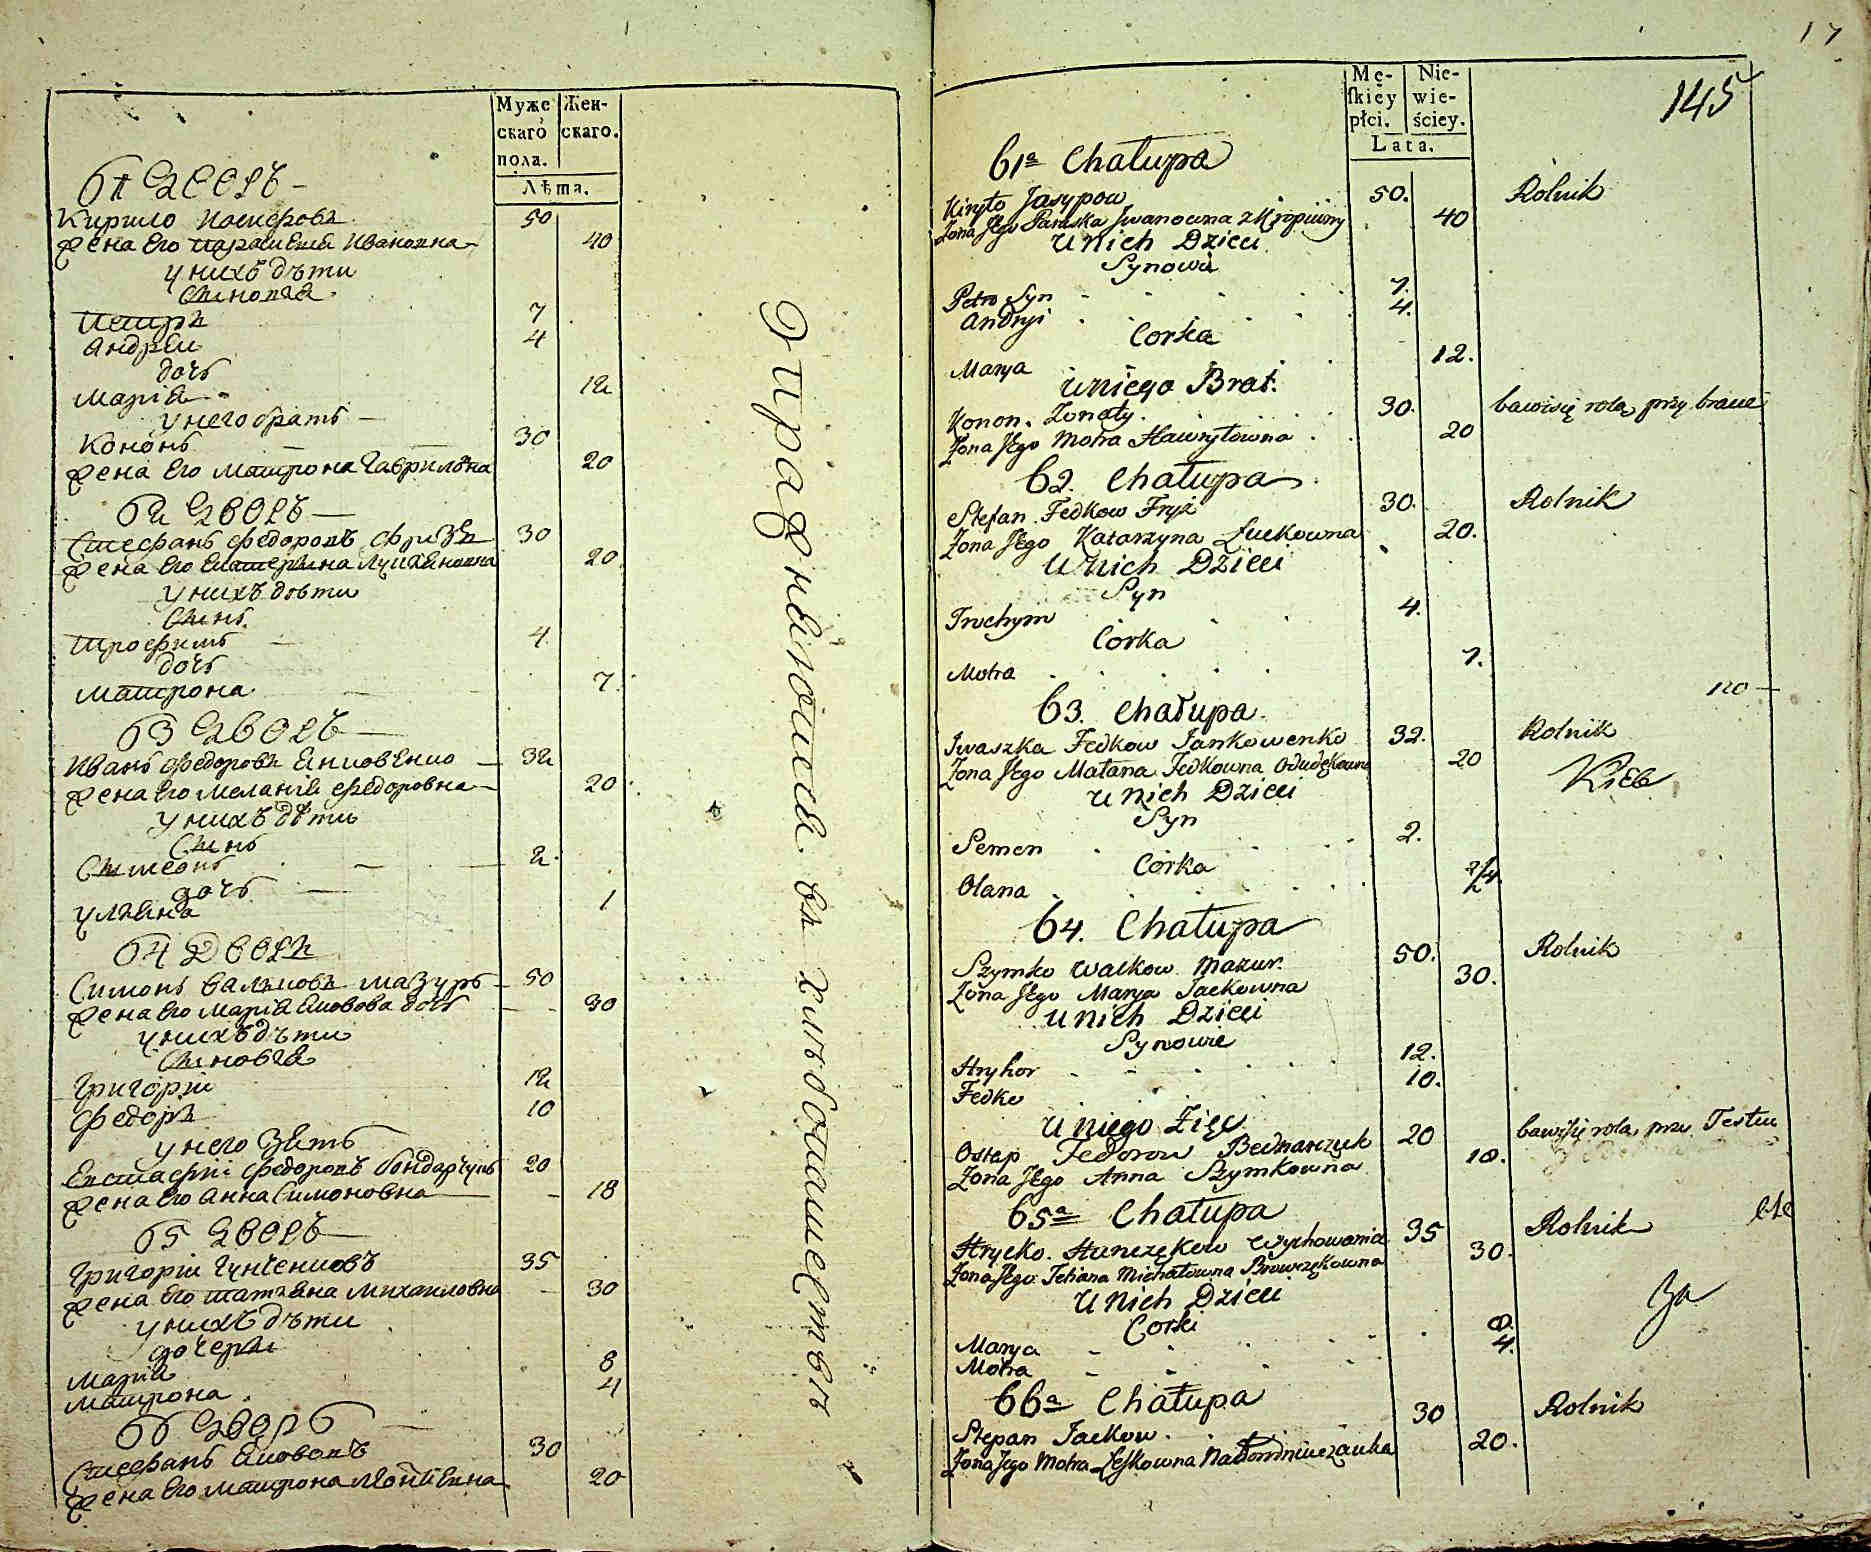 Муже
скаго
пола.
Жен-
скаго.
Лѣта.
61 Дворъ
Кирило Іосифовъ 50
Жена Его Параскева Ивановна 40
у нихъ дѣти
Сыновья
Петръ 7
Андрей 4
дочь
Марія 12
у него братъ
Кононъ 30
Жена Его Матрона Гавриловна 20
62 Дворъ
Стефанъ Федоровъ Фризъ 30
Жена Его Екатерина Лукьяновна 20
у нихъ дѣти
Сынъ
Трофимъ 4
дочь
Матрона 7
63 Дворъ
Иванъ Федоровъ Янковенко 32
Жена Его Меланія Федоровна 20
у нихъ дѣти
Сынъ
Симеонъ 2
дочь
Ульяна 1
64 Дворъ
Симонъ Вальковъ Мазуръ 50
Жена Его Марія Яковова дочь 30
у нихъ дѣти
Сыновья
Григорій 12
Федоръ 10
у него Зять
Евстафій Федоровъ Бондарчукъ 20
Жена Его Анна Симоновна 18
65 Дворъ
Григорій 35
Жена Его Татьяна Михайловна 30
у нихъ дѣти
дочери
Марія 8
Матрона 4
66 Дворъ
Стефанъ Якововъ 30
Жена Его Матрона 20
Упражняются въ хлѣбопашествѣ
17
145
Mę-
ſkiéy
płci.
Nie-
wie-
ściey.
Lata.
61a Chałupa
Kiryło Jasypow 50. Rolnik
Żona Jego Paraska Jwanowna z Kropiwny 40
U Nich Dzieci
Synowie
Petro Syn 7.
Andryi 4.
Corka
Marya 12.
U niego Brat.
Konon. Żonaty. 30. bawi się rolą, przy bracie
Żona Jego Motra Hawryłowna 20
62. Chałupa
Stefan Fedkow Fryz 30. Rolnik
Żona Jego Katarzyna Luckowna 20.
U Nich Dzieci
Syn
Trochym 4.
Corka
Motra 7.
63. Chałupa
Jwaszka Fedkow Jankowenko 32. Rolnik
Żona Jego Małana Fedkowna 20
U Nich Dzieci
Syn
Semen 2.
Corka
Olana
64. Chałupa
Szymko Walkow Mazur. 50. Rolnik
Żona Jego Marya Jackowna 30.
U Nich Dzieci
Synowie
Hryhor 12.
Fedko 10.
U niego Zięć
Ostap Fedorow Bednarczuk 20 bawi się rolą, przy Testiu
Żona Jego Anna Szymkowna 18.
65a Chałupa
Hrycko. 35 Rolnik
Żona Jego Tetiana Michałowna 30.
U Nich Dzieci
Corki
Marya 8.
Motra 4.
66a Chałupa
Stepan Jackow. 30 Rolnik
Żona Jego Motra 20.